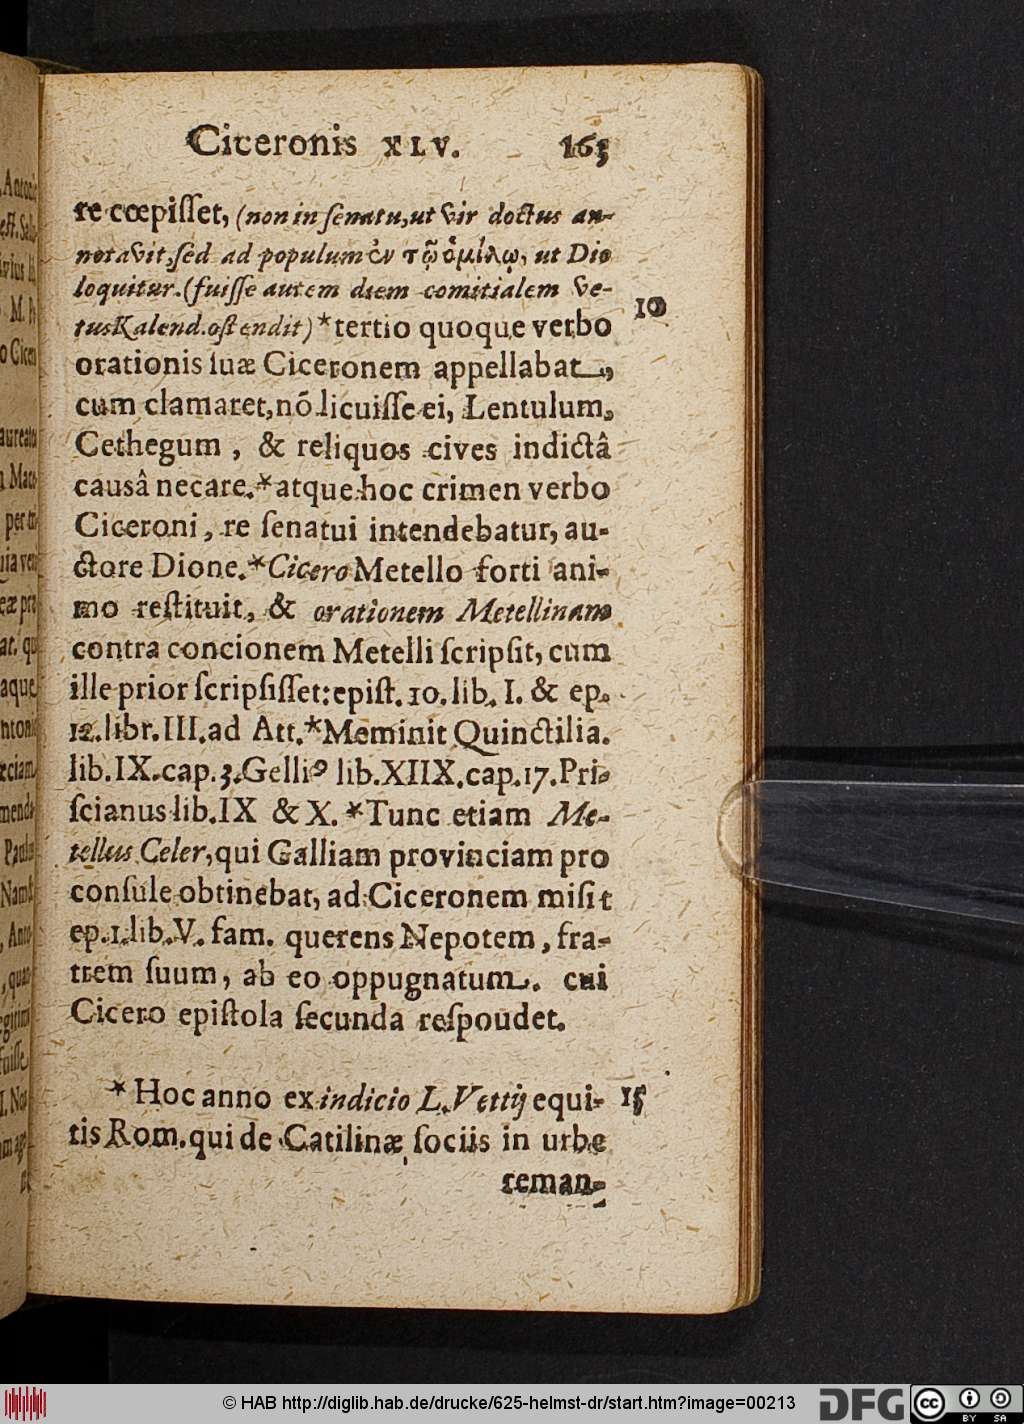 Ciceronis XLV. 163
re cœpiſſet, (non in ſenatu, ut vir doctus an-
notavit, ſed ad populum ἐν τῷ ὁμίλῳ, ut Dio
loquitur. (fuiſſe autem diem comitialem Ve-
tus Kalend. oſtendit) *tertio quoque verbo
10
orationis ſuæ Ciceronem appellabat,
cum clamaret, nō licuiſſe ei, Lentulum,
Cethegum, & reliquos cives indictâ
causâ necare. *atque hoc crimen verbo
Ciceroni, re ſenatui intendebatur, au-
ctore Dione. *Cicero Metello forti ani-
mo reſtituit, & orationem Metellinam
contra concionem Metelli ſcripſit, cum
ille prior ſcripſiſſet: epiſt. 10. lib. I. & ep.
12. libr. III. ad Att. *Meminit Quinctilia.
lib. IX. cap. 3. Gelliꝰ lib. XIIX. cap. 17. Pri-
ſcianus lib. IX & X. *Tunc etiam Me-
tellus Celer, qui Galliam provinciam pro
conſule obtinebat, ad Ciceronem miſit
ep. 1. lib. V. fam. querens Nepotem, fra-
trem ſuum, ab eo oppugnatum. cui
Cicero epiſtola ſecunda reſpoudet.
*Hoc anno ex indicio L. Vettij equi- 15
tis Rom. qui de Catilinæ ſociis in urbe
reman-
© HAB http://diglib.hab.de/drucke/625-helmst-dr/start.htm?image=00213
DFG
cc
BY SA